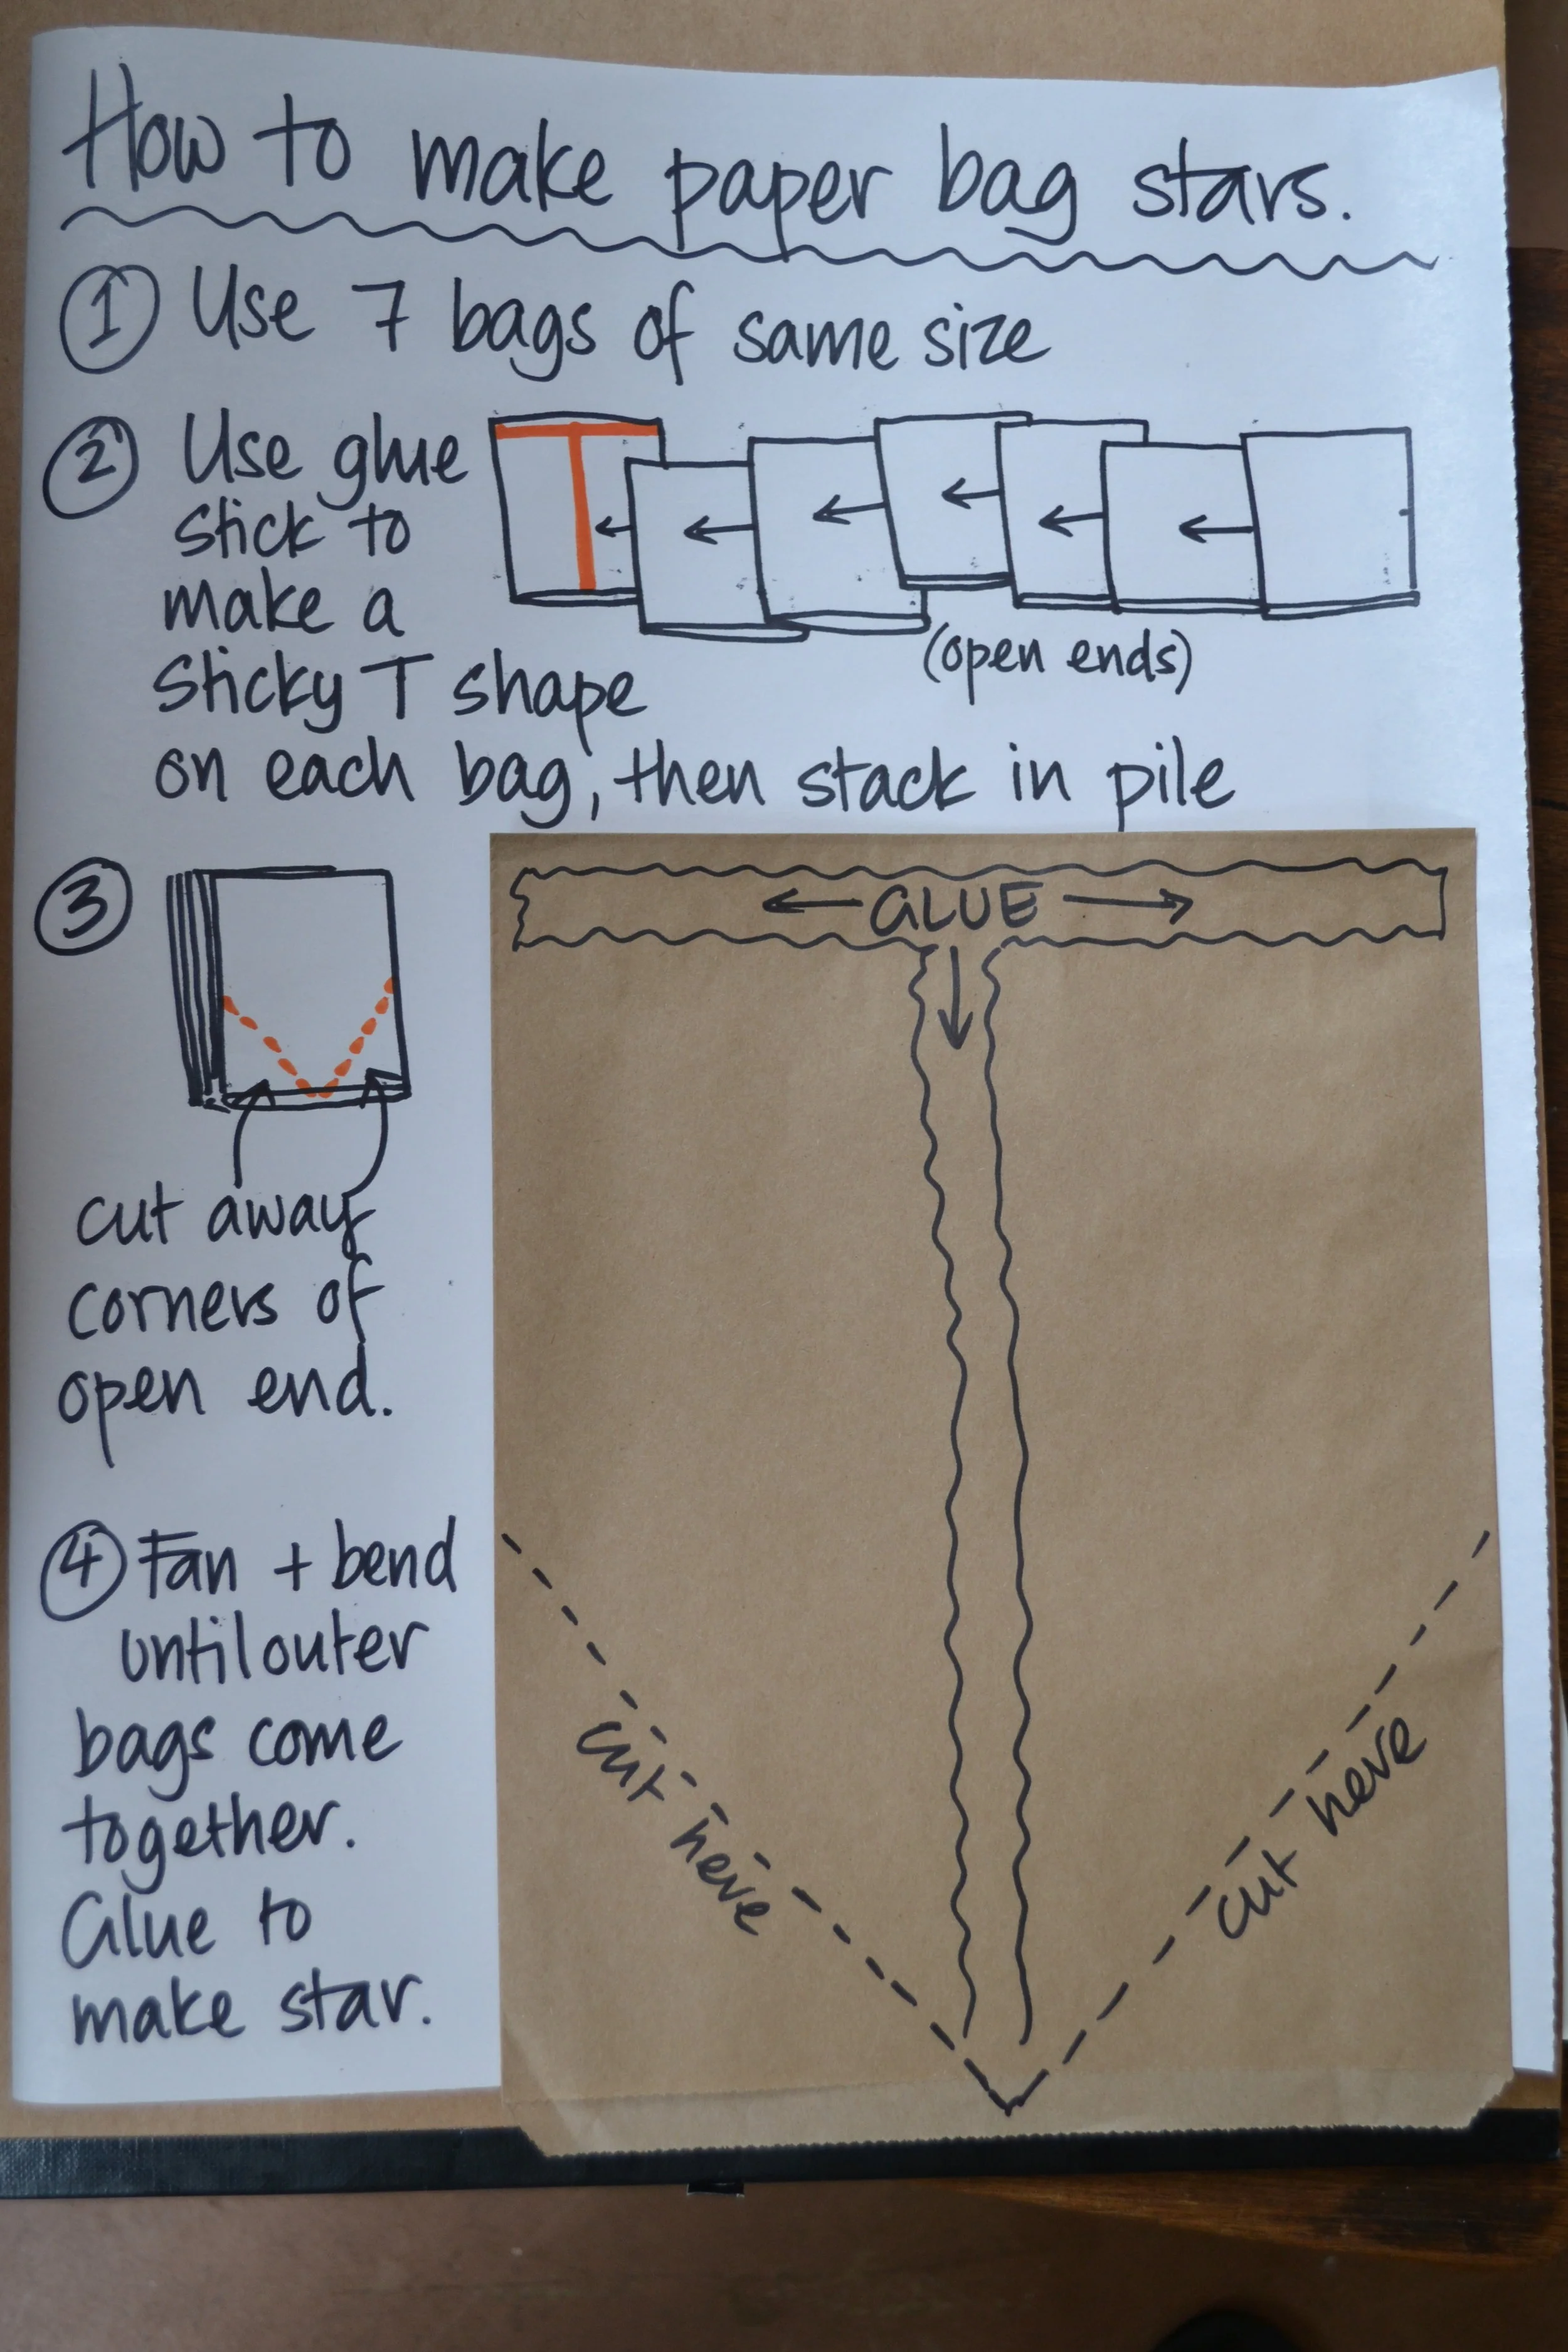 How to make paper bag stars.
① Use 7 bags of same size
② Use glue
stick to
make a
sticky T shape
on each bag, then stack in pile
(open ends)
③
cut away
corners of
open end.
④ Fan + bend
until outer
bags come
together.
Glue to
make star.
GLUE
cut here
cut here